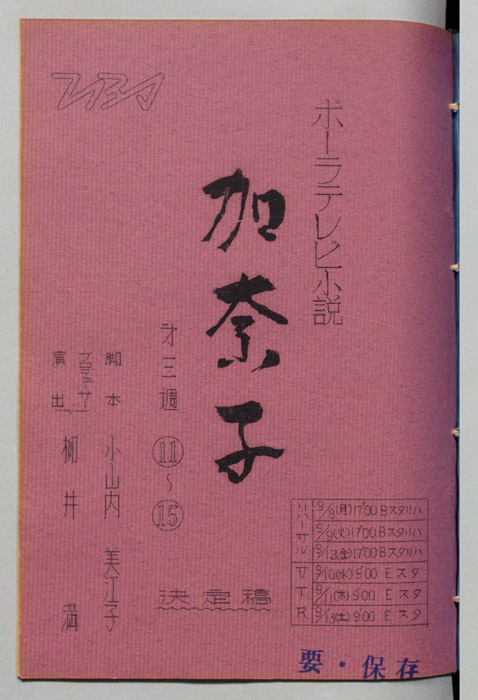 TBS
ポーラテレビ小説
加奈子
才三週 ⑪〜⑮
脚本 小山内 美江子
プロデューサー
演出
柳井 満
決定稿
リハーサル
9/8(月)17:00 Bスタリハ
9/9(火)17:00 Bスタリハ
9/12(金)17:00 Bスタリハ
VTR
9/10(水)9:00 Eスタ
9/11(木)9:00 Eスタ
9/13(土)9:00 Eスタ
要・保存